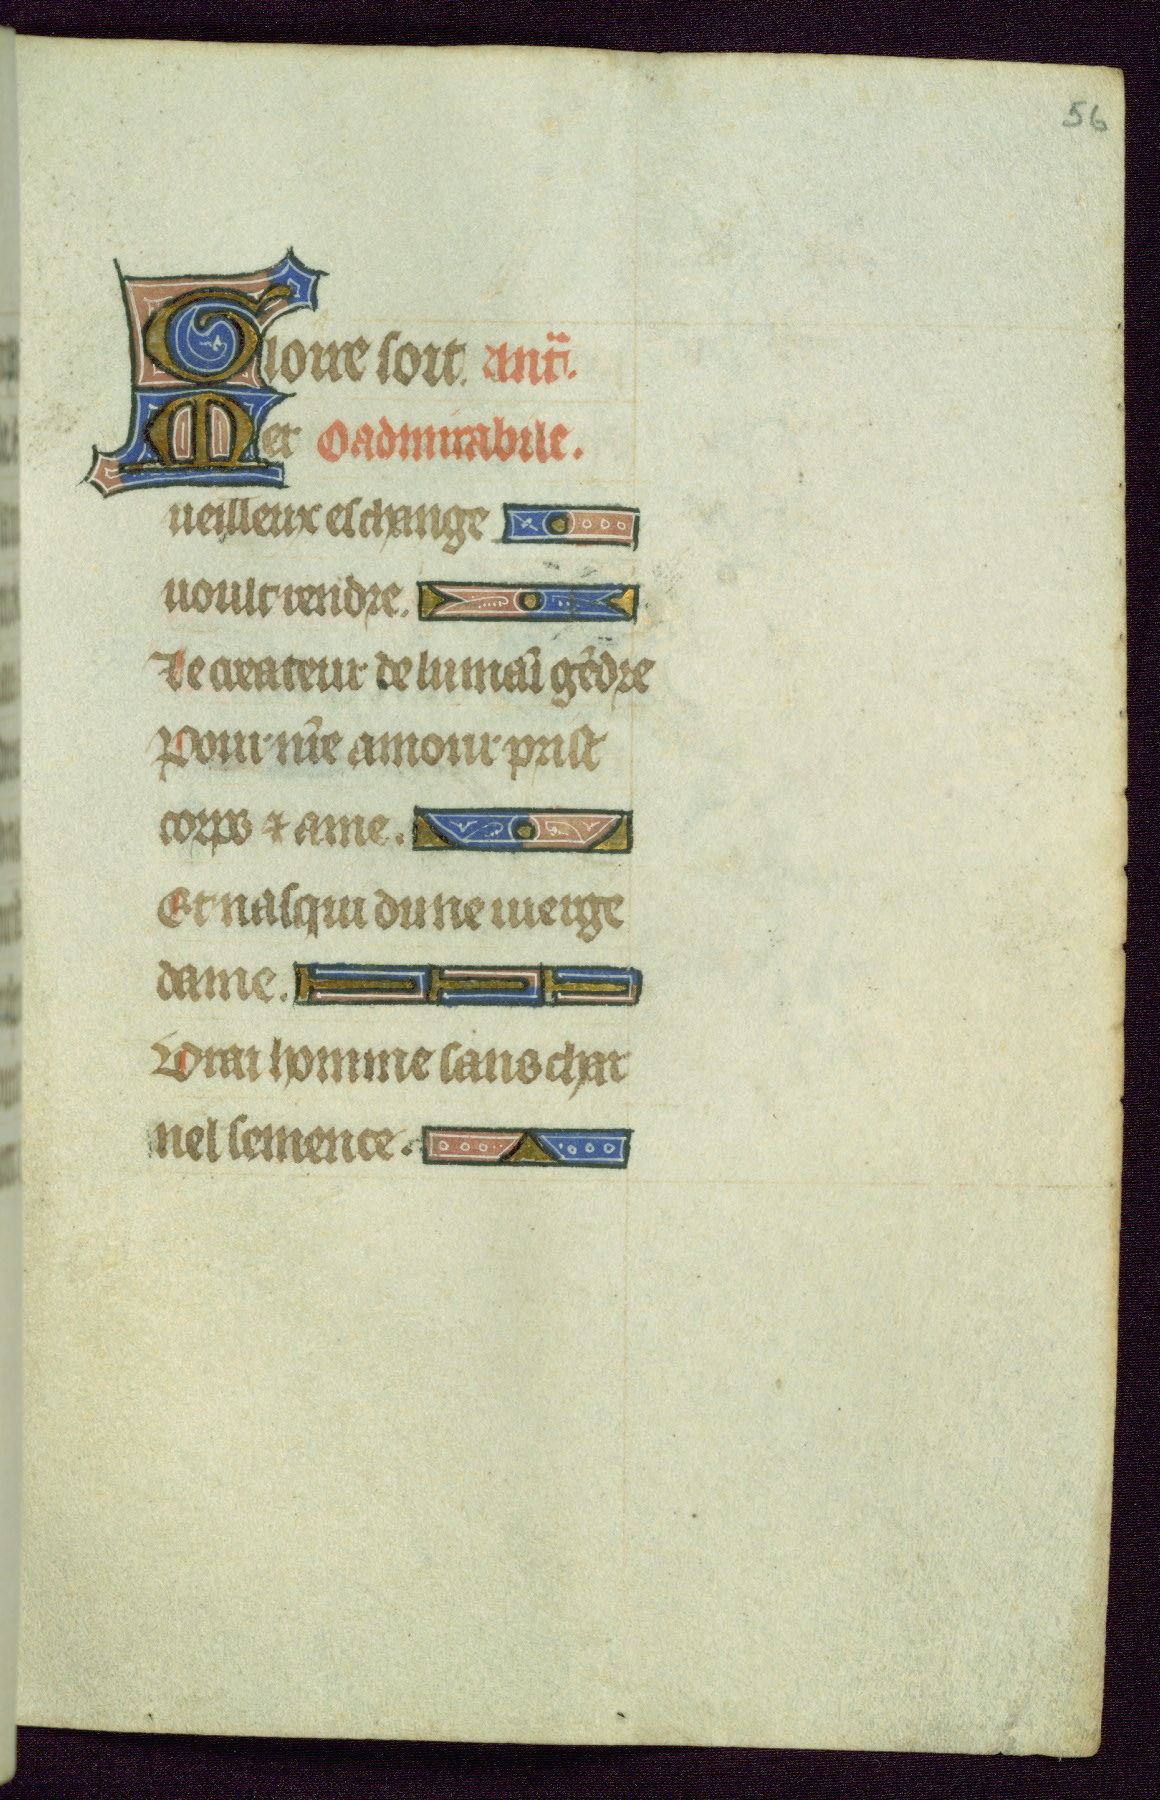 56
Gloire soit. antͥ.
Mer O admirabile.
ueilleux eschange
uoult rendre.
Le createur de lumaī gēdre
Pour nr̄e amour prist
corps ⁊ ame.
Et nasqui dune uierge
dame.
Vrai homme sans char
nel semence.